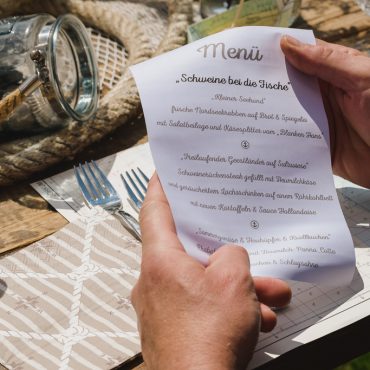 Menü
„Schweine bei die Fische"
„Kleiner Seehund"
frische Nordseekrabben auf Brot & Spiegelei
mit Salatbeilage und Käsesplitter vom „Blanken Hans
„Freilaufender Geestländer auf Salzwiese"
Schweinerückensteak gefüllt mit Heumilchkäse
und geräuchertem Lachsschinken auf einem Rahmkohlbett
mit neuen Kartoffeln & Sauce Hollandaise
& Heuhüpfer &
Heumilch- Panna Cotta
& Schlagsahne